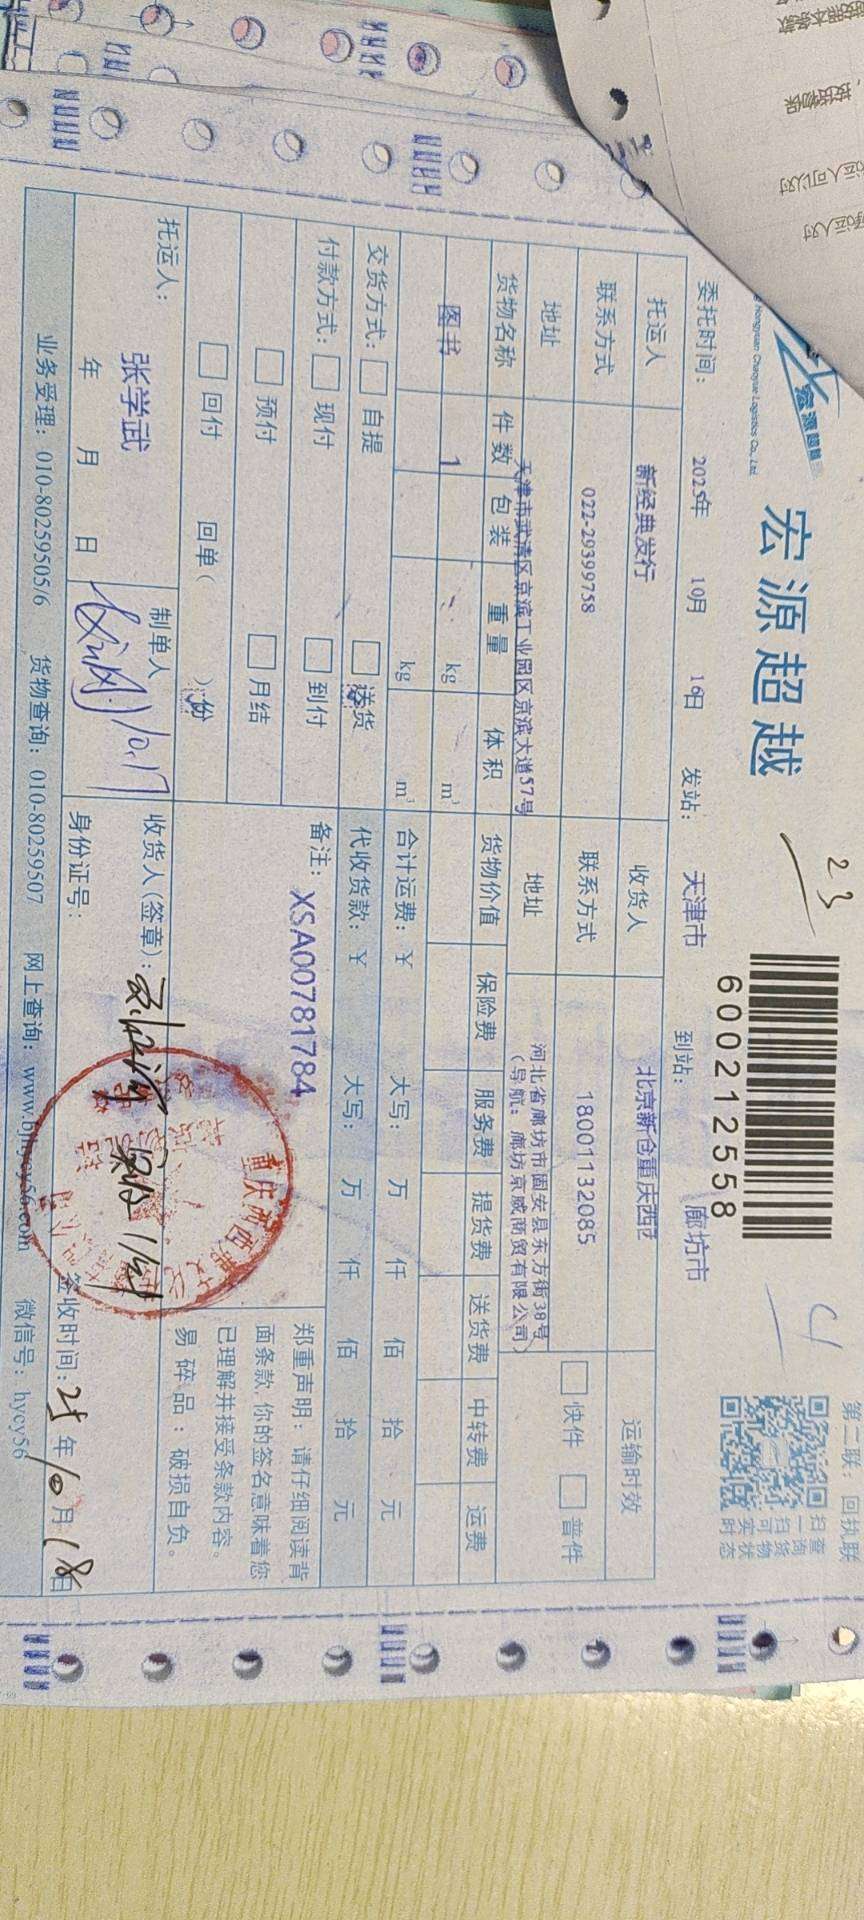 宏源超越
宏源超越
23
4
600212558
第二联：回执联
扫一扫
查询货物
可实时状态
委托时间： 2025年 10月 16日 发站： 天津市 到站： 廊坊市
托运人 新经典发行 收货人 北京新仓重庆西区 运输时效
联系方式 022-29399758 联系方式 18001132085 快件 普件
地址 天津市武清区京滨工业园区京滨大道57号 地址 河北省廊坊市固安县东方街38号
（导航：廊坊京威商贸有限公司）
货物名称 件数 包装 重量 体积 货物价值 保险费 服务费 提货费 送货费 中转费 运费
图书 1 kg m³
kg m³
交货方式： 自提 送货 合计运费：￥ 大写： 万 仟 佰 拾 元
付款方式： 现付 到付 代收货款：￥ 大写： 万 仟 佰 拾 元
预付 月结
回付 回单（ ）份
备注： XSA00781784
郑重声明：请仔细阅读背
面条款，你的签名意味着您
已理解并接受条款内容。
易碎品：破损自负。
托运人： 张学武
年 月 日
制单人
10.17
收货人（签章）：
身份证号：
签收时间：25年10月18日
业务受理：010-80259505/6 货物查询：010-80259507 网上查询：www.bjhycy56.com 微信号：hycy56